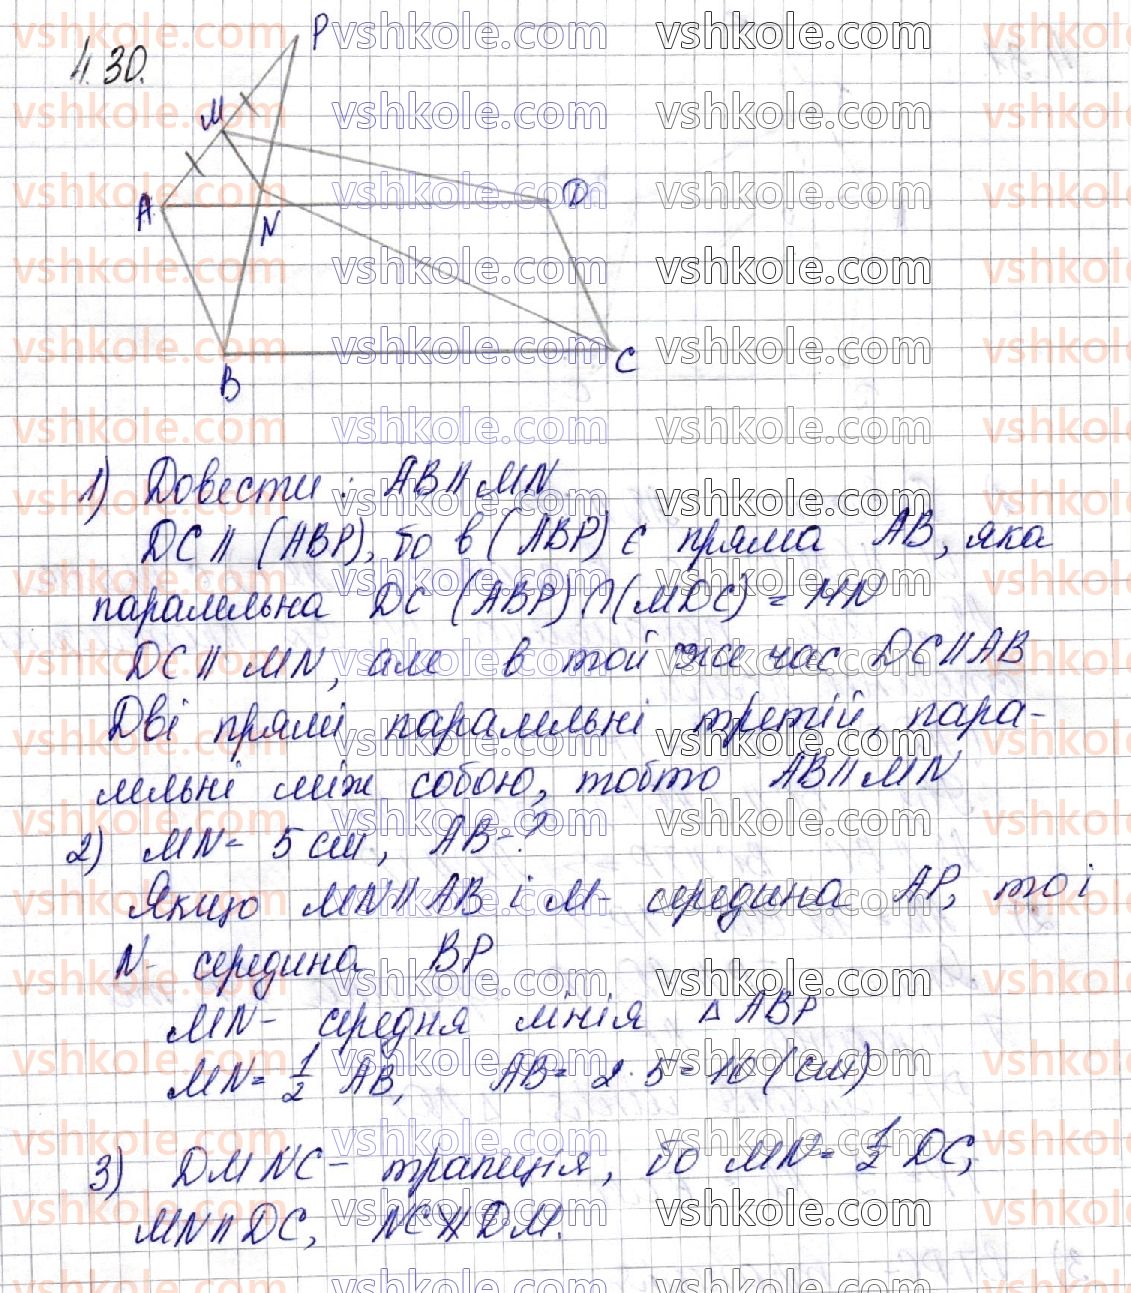 4.30.
P
M
A
N
D
B
C
1) Довести: AB || MN.
DC || (ABP), бо в (ABP) є пряма AB, яка
паралельна DC (ABP) ∩ (MDC) = MN
DC || MN, але в той же час DC || AB
Дві прямі паралельні третій, пара-
лельні між собою, тобто AB || MN
2) MN = 5 см, AB - ?
Якщо MN || AB і M - середина AP, то і
N - середина BP
MN - середня лінія △ ABP
MN = 1/2 AB, AB = 2 · 5 = 10 (см)
3) DMNC - трапеція, бо MN = 1/2 DC,
MN || DC, NC ∦ DM.
vshkole.com